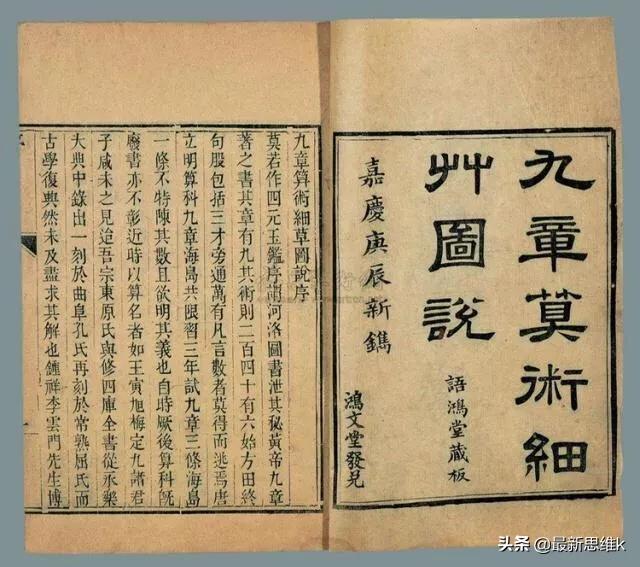 九章算術細
艸圖說
語鴻堂藏板
嘉慶庚辰新鐫
鴻文堂發兌
九章算術細草圖說序
莫若作四元玉鑑序謂河洛圖書泄其秘黃帝九章
著之書其章有九其術則二百四十有六始方田終
句股包括三才旁通萬有凡言數者莫得而逃焉唐
立明算科九章海島共限習三年試九章三條海島
一條不特陳其數且欲明其義也自時厥後算科既
廢書亦不彰近時以算名者如王寅旭梅定九諸君
子咸未之見迨吾宗東原氏與修四庫全書從永樂
大典中錄出一刻於曲阜孔氏再刻於常熟屈氏而
古學復興然未及盡求其解也鍾祥李雲門先生博
头条 @最新思维k